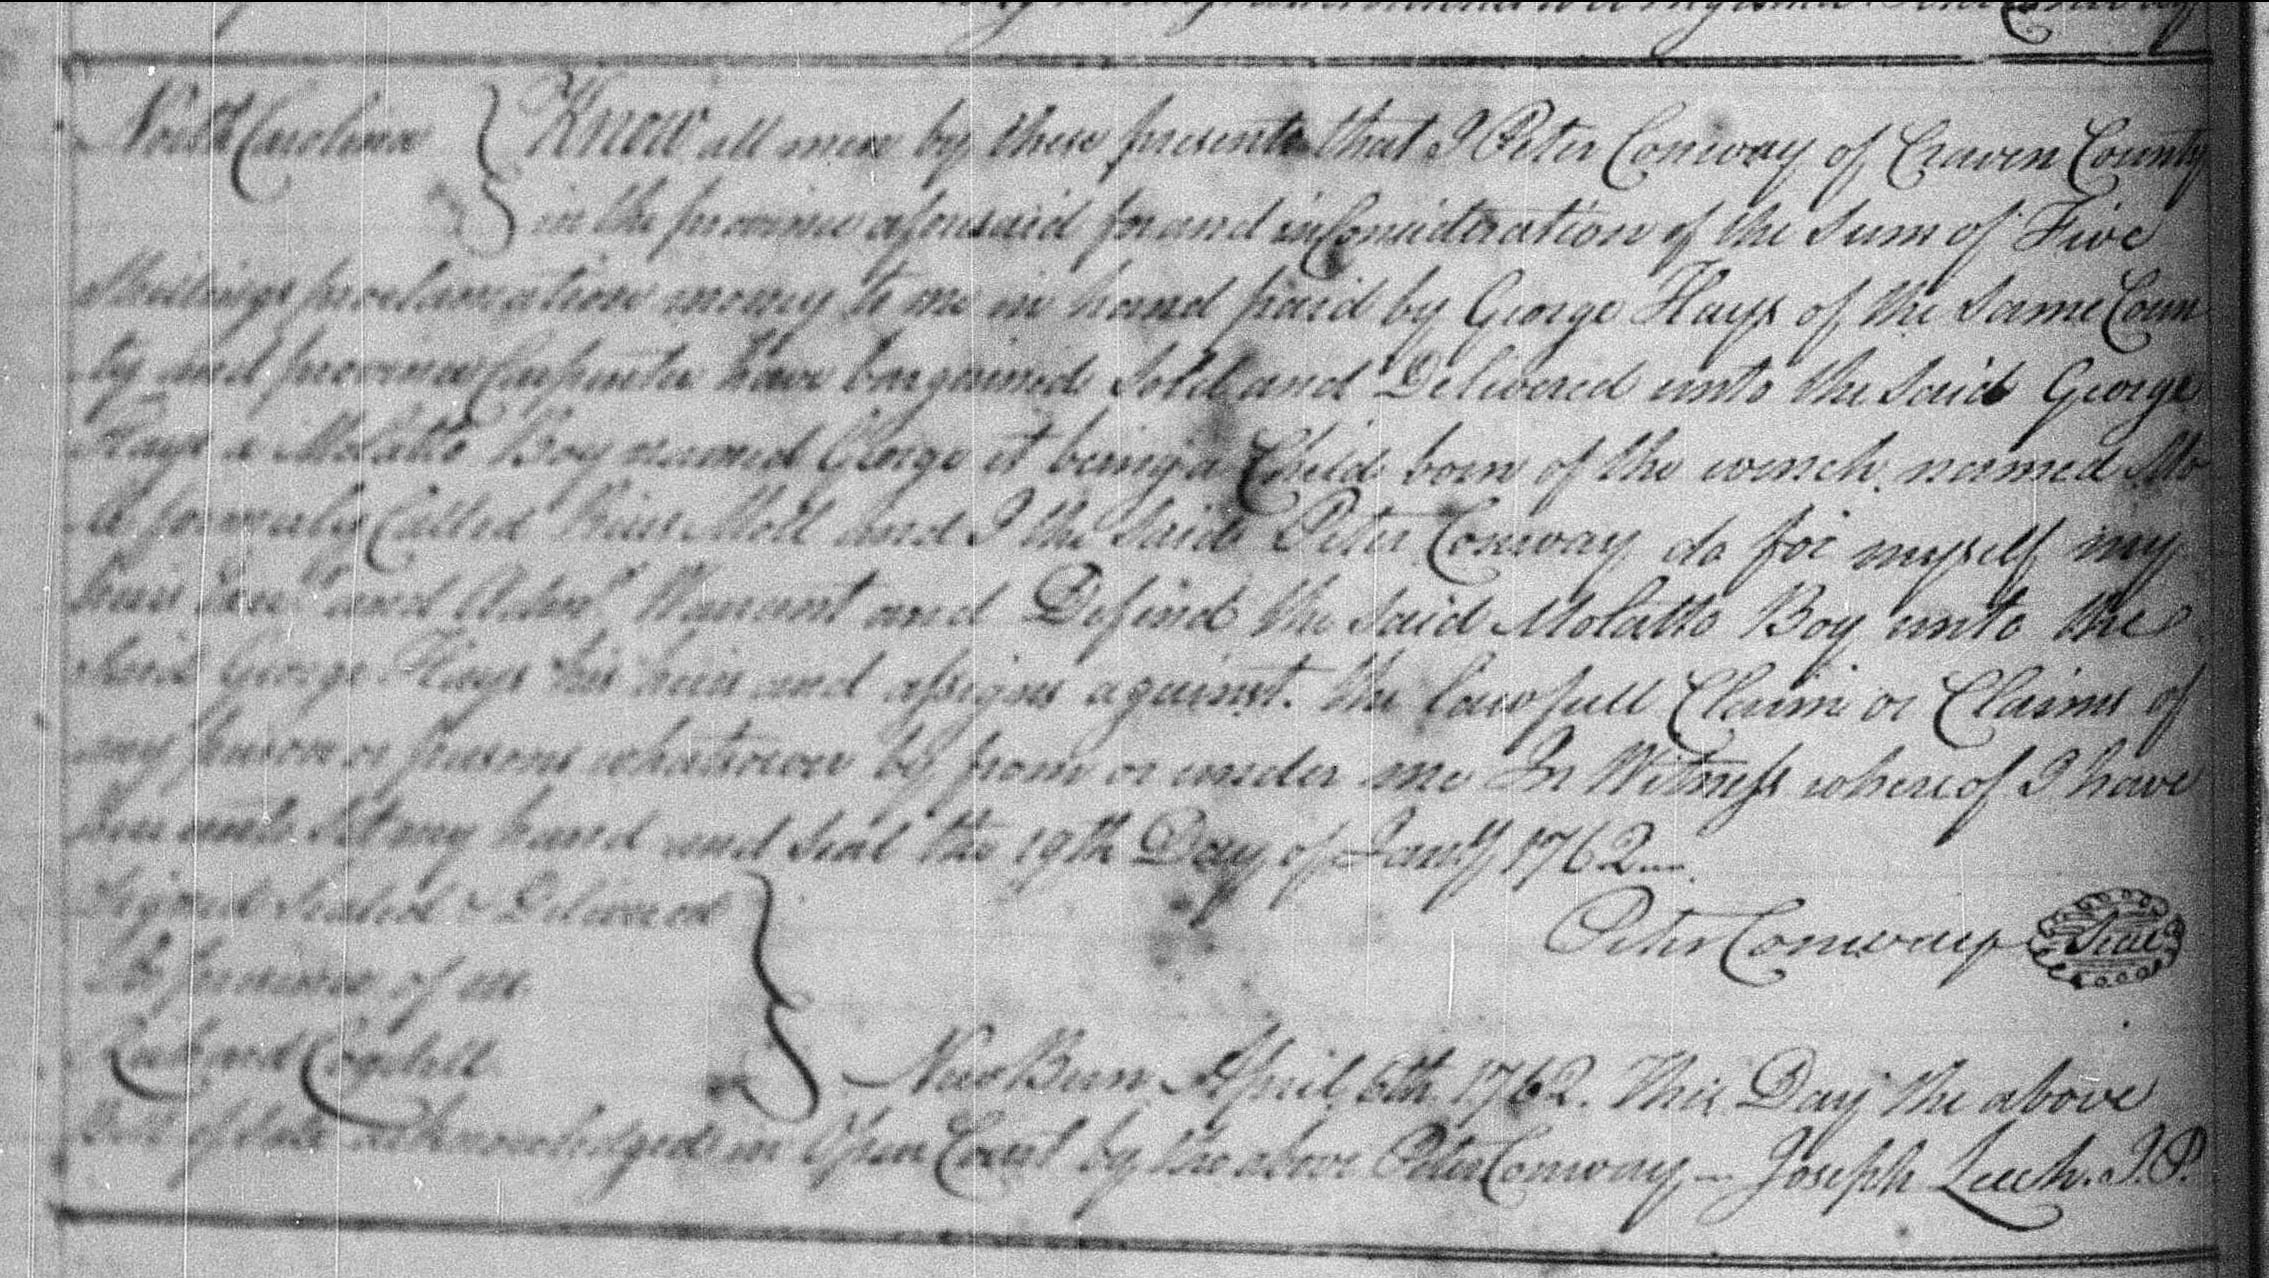 North Carolina } Know all men by these presents that I Peter Conway of Craven County
in the province aforesaid for and in Consideration of the Sum of Five
Shillings proclamation money to me in hand paid by George Hays of the Same Coun
ty and province Carpenter have bargained Sold and Delivered unto the Said George
Hays a Molatto Boy named George it being a Child born of the wench named Mo
ll formerly Called Moll and I the Said Peter Conway do for myself my
heirs and Warrant and Defend the Said Molatto Boy unto the
Said George Hays his heirs and assigns against the lawfull Claim or Claims of
any person or persons whatsoever by from or under me In Witness whereof I have
here unto Set my hand and Seal the 19th Day of Jany 1762
Signed Sealed & Delivered
In presence of us
Peter Conway Seal
Richard Cogdell
New Bern April 6th 1762. This Day the above
Bill of Sale acknowledged in Open Court by the above Peter Conway - Joseph Leech. J.P.